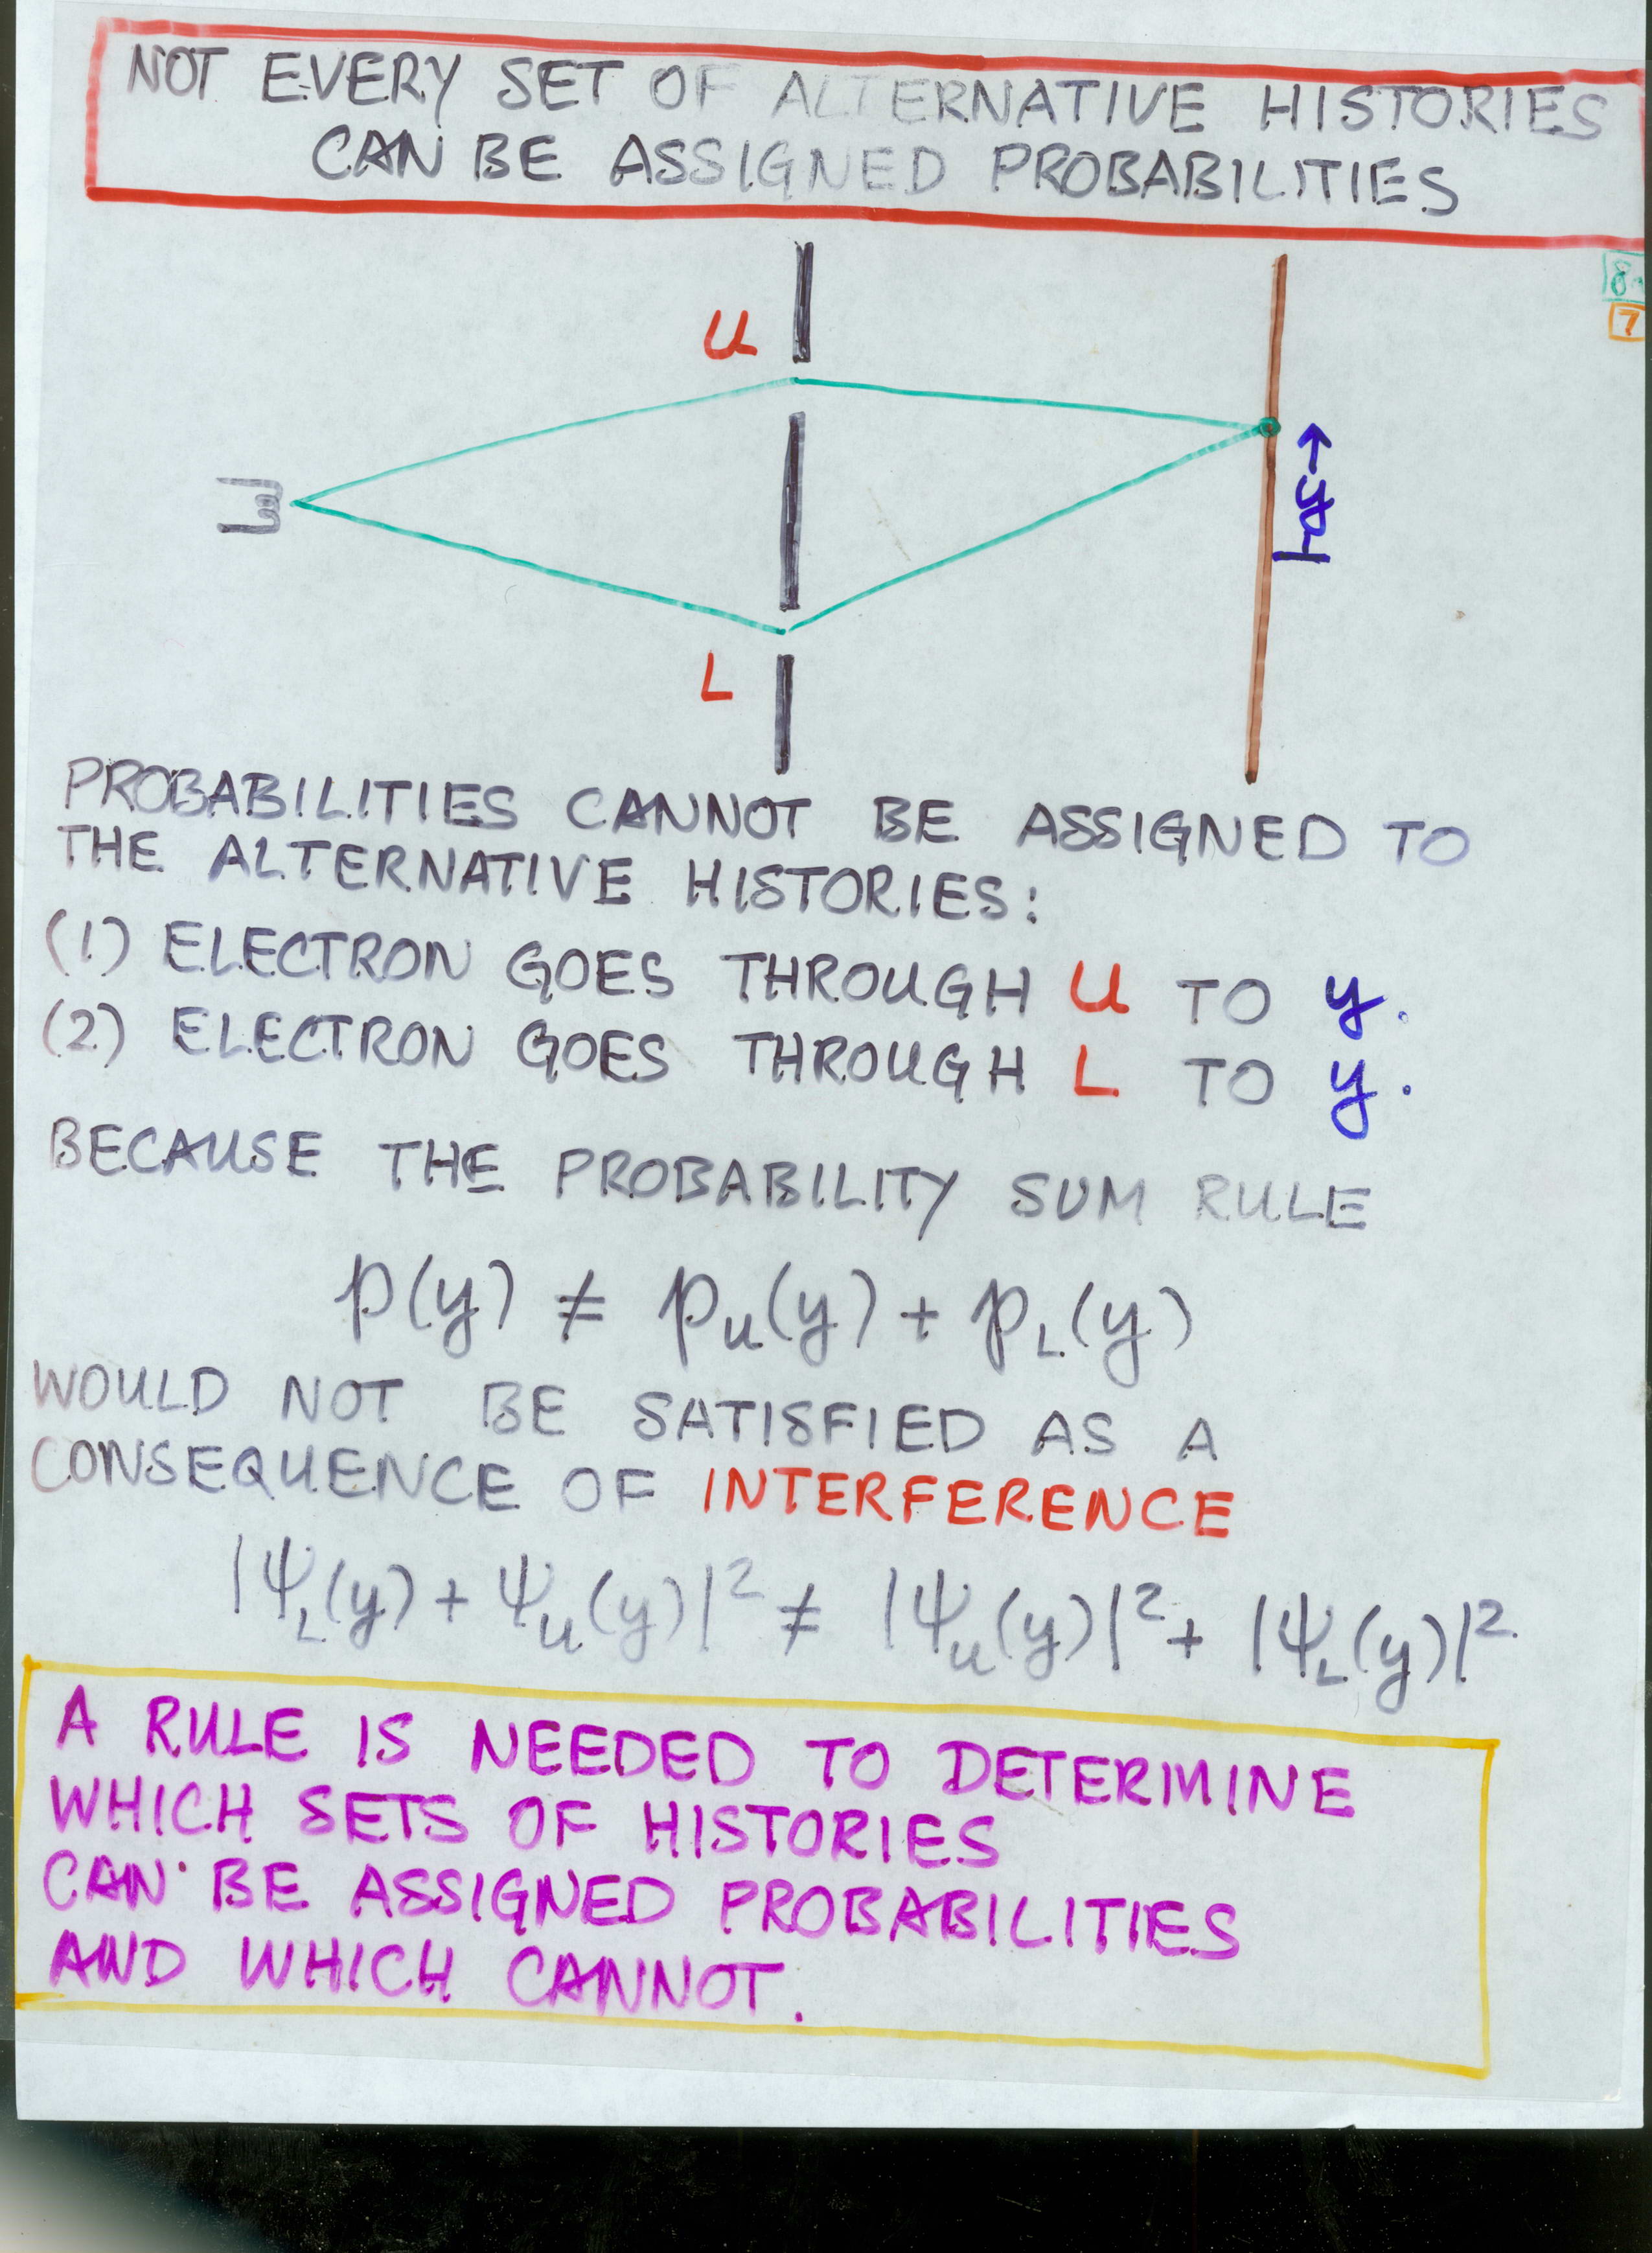 NOT EVERY SET OF ALTERNATIVE HISTORIES
CAN BE ASSIGNED PROBABILITIES
8
7
U
y
L
PROBABILITIES CANNOT BE ASSIGNED TO
THE ALTERNATIVE HISTORIES:
(1) ELECTRON GOES THROUGH U TO y.
(2) ELECTRON GOES THROUGH L TO y.
BECAUSE THE PROBABILITY SUM RULE
p(y) ≠ p_U(y) + p_L(y)
WOULD NOT BE SATISFIED AS A
CONSEQUENCE OF INTERFERENCE
|Ψ_L(y) + Ψ_U(y)|² ≠ |Ψ_U(y)|² + |Ψ_L(y)|²
A RULE IS NEEDED TO DETERMINE
WHICH SETS OF HISTORIES
CAN BE ASSIGNED PROBABILITIES
AND WHICH CANNOT.